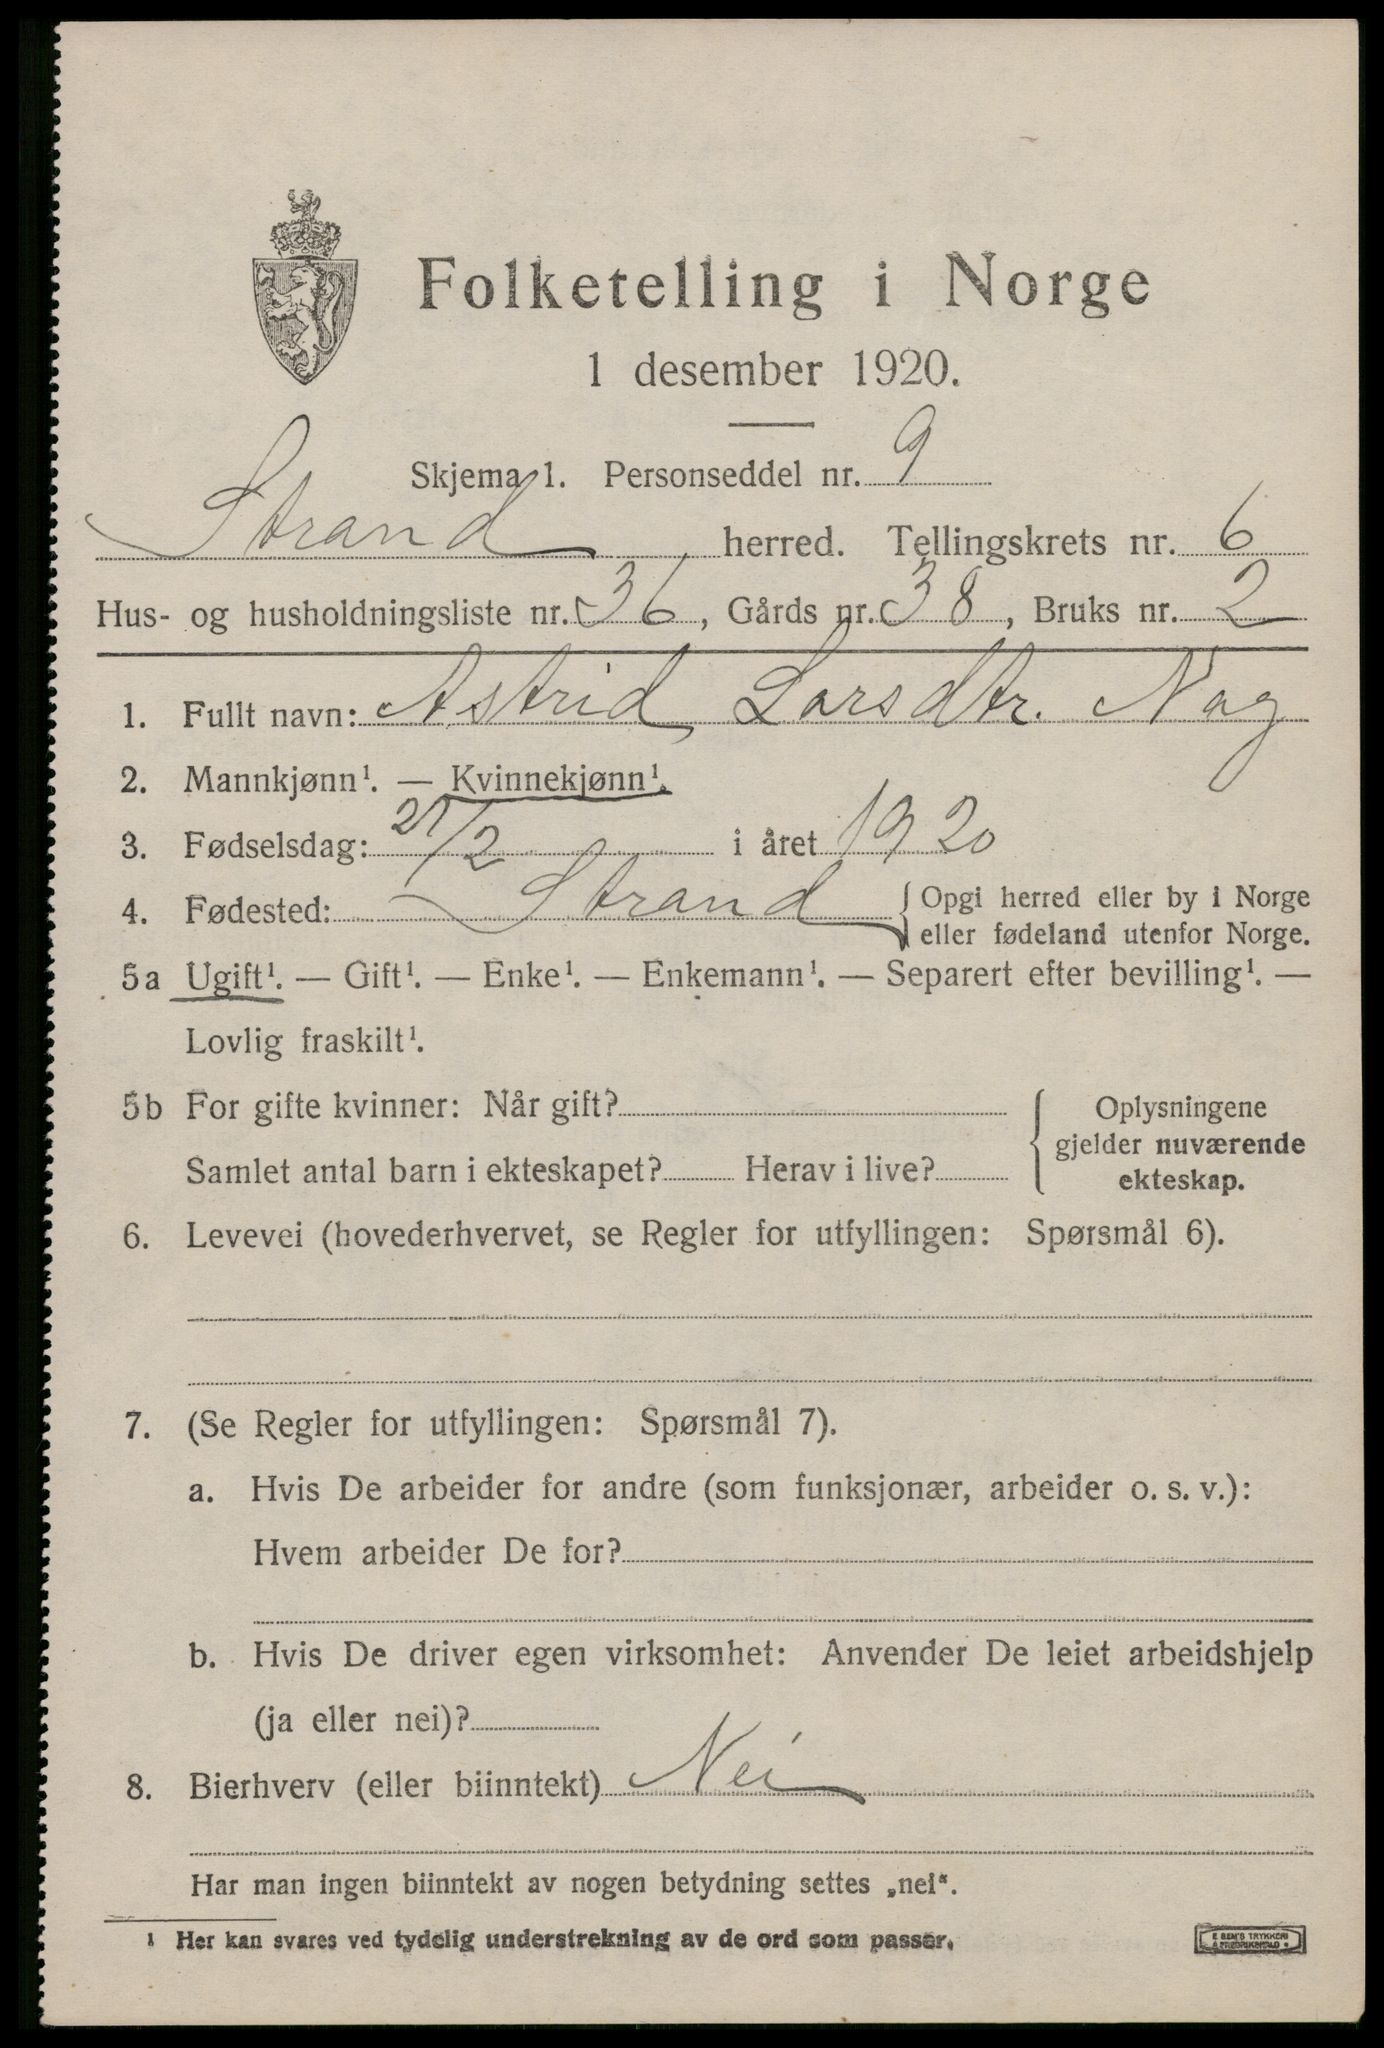 Folketelling i Norge
1 desember 1920.
Skjema 1. Personseddel nr. 9
Strand herred. Tellingskrets nr. 6
Hus- og husholdningsliste nr. 36, Gårds nr. 38, Bruks nr. 2
1. Fullt navn: Astrid Larsdtr. Nag
2. Mannkjønn¹. — Kvinnekjønn¹.
3. Fødselsdag: 27/2 i året 1920
4. Fødested: Strand { Opgi herred eller by i Norge
eller fødeland utenfor Norge.
5a Ugift¹. — Gift¹. — Enke¹. — Enkemann¹. — Separert efter bevilling¹. —
Lovlig fraskilt¹.
5b For gifte kvinner: Når gift? { Oplysningene
gjelder nuværende
Samlet antal barn i ekteskapet? Herav i live? ekteskap.
6. Levevei (hovederhvervet, se Regler for utfyllingen: Spørsmål 6).
7. (Se Regler for utfyllingen: Spørsmål 7).
a. Hvis De arbeider for andre (som funksjonær, arbeider o. s. v.):
Hvem arbeider De for?
b. Hvis De driver egen virksomhet: Anvender De leiet arbeidshjelp
(ja eller nei)?
8. Bierhverv (eller biinntekt) Nei
Har man ingen biinntekt av nogen betydning settes „nei“.
¹ Her kan svares ved tydelig understrekning av de ord som passer.